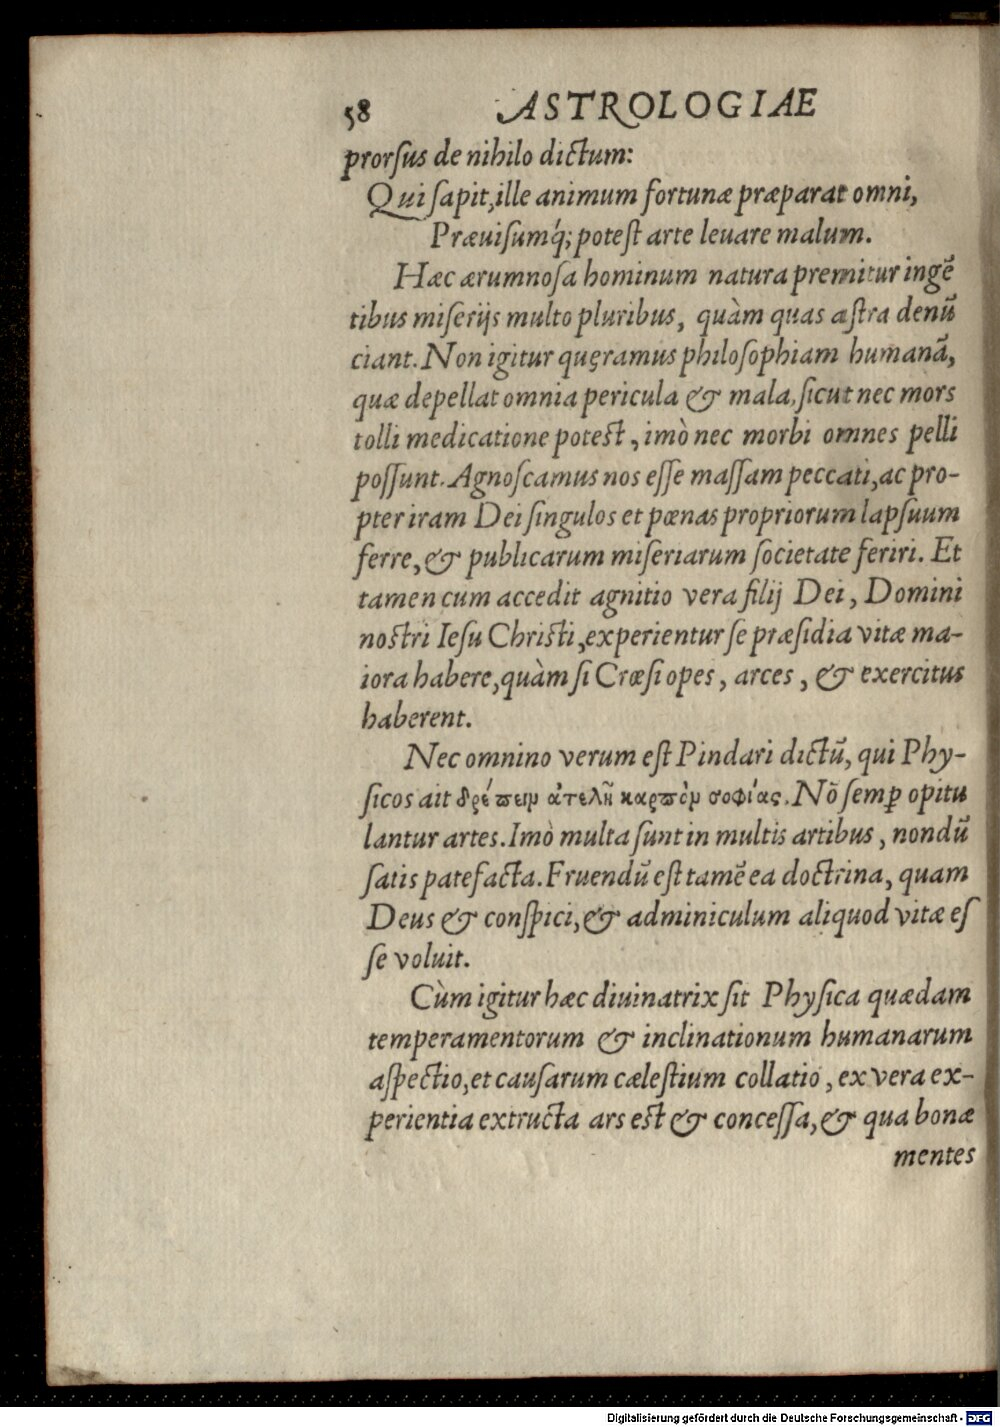 58 ASTROLOGIAE
prorſus de nihilo dictum:
Qui ſapit, ille animum fortunæ præparat omni,
Præuiſumq́; poteſt arte leuare malum.
Hæc ærumnoſa hominum natura premitur ingẽ
tibus miſerijs multo pluribus, quàm quas aſtra denũ
ciant. Non igitur quęramus philoſophiam humanã,
quæ depellat omnia pericula & mala, ſicut nec mors
tolli medicatione poteſt, imò nec morbi omnes pelli
poſſunt. Agnoſcamus nos eſſe maſſam peccati, ac pro-
pter iram Dei ſingulos et pœnas propriorum lapſuum
ferre, & publicarum miſeriarum ſocietate feriri. Et
tamen cum accedit agnitio vera filij Dei, Domini
noſtri Ieſu Chriſti, experientur ſe præſidia vitæ ma-
iora habere, quàm ſi Crœſi opes, arces, & exercitus
haberent.
Nec omnino verum eſt Pindari dictũ, qui Phy-
ſicos ait δρέπειν ἀτελῆ καρπὸν σοφίας. Nõ ſemꝑ opitu
lantur artes. Imò multa ſunt in multis artibus, nondũ
ſatis patefacta. Fruendũ eſt tamẽ ea doctrina, quam
Deus & conſpici, & adminiculum aliquod vitæ eſ
ſe voluit.
Cùm igitur hæc diuinatrix ſit Phyſica quædam
temperamentorum & inclinationum humanarum
aſpectio, et cauſarum cæleſtium collatio, ex vera ex-
perientia extructa ars eſt & conceſſa, & qua bonæ
mentes
Digitalisierung gefördert durch die Deutsche Forschungsgemeinschaft - DFG